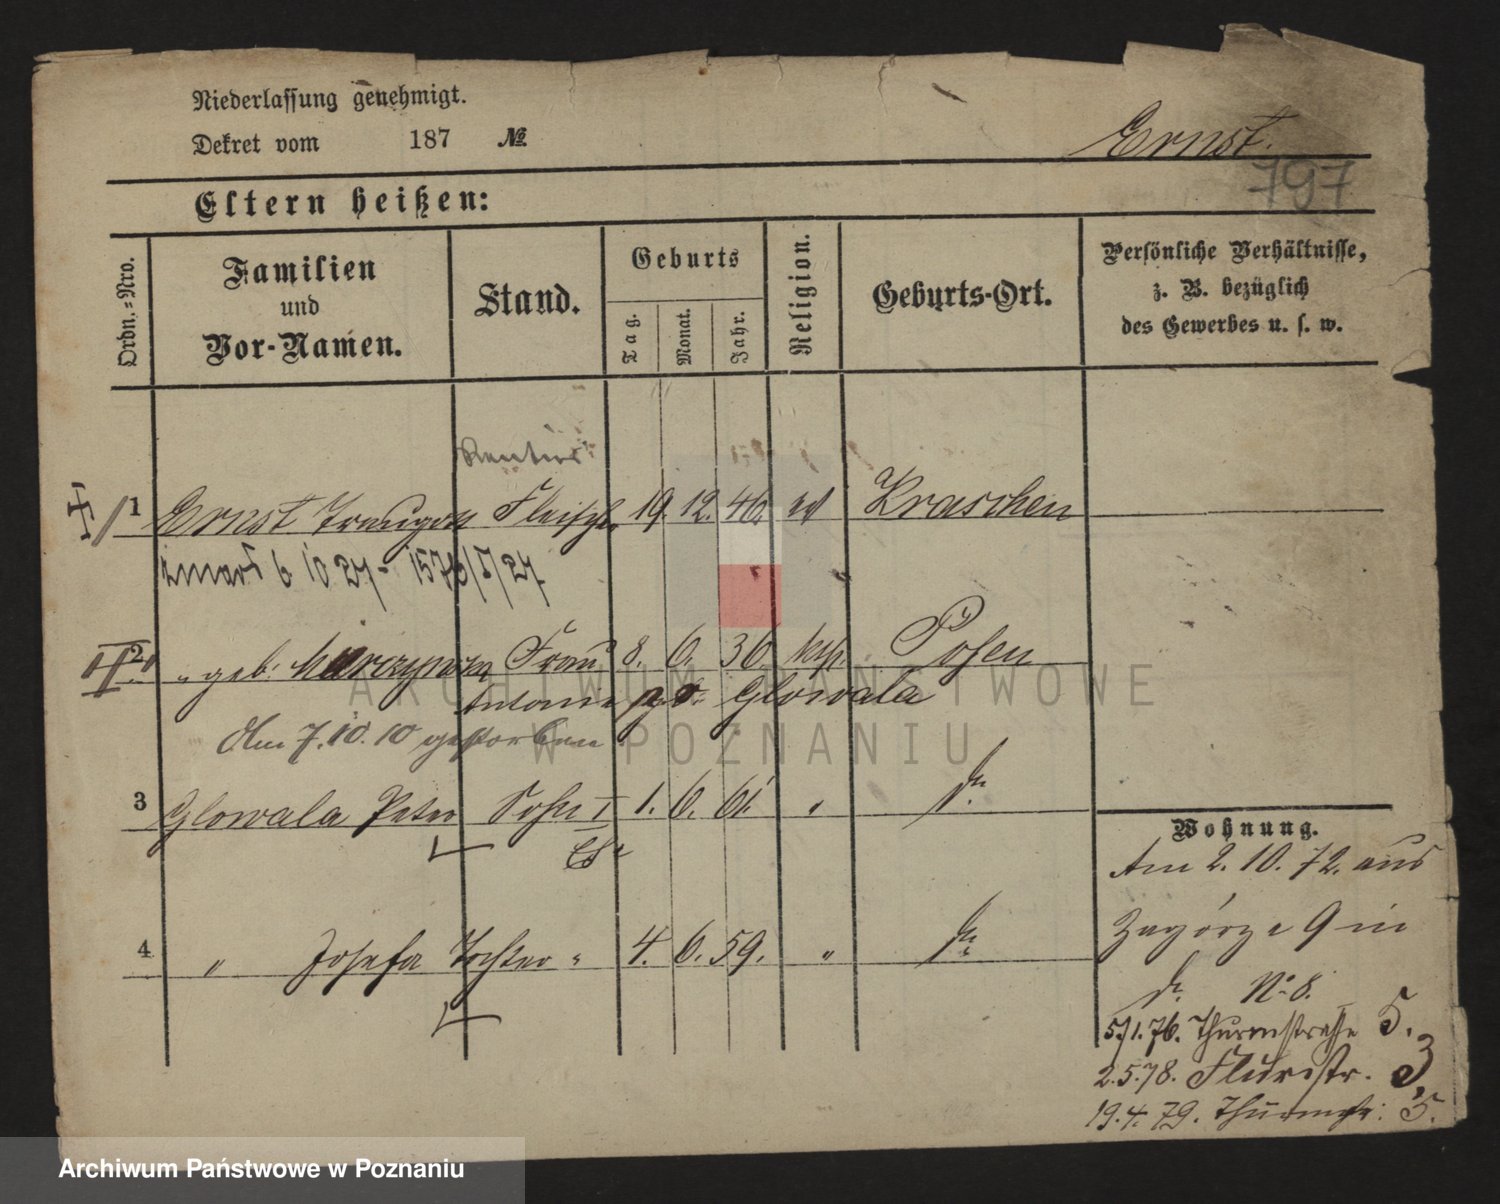 Niederlassung genehmigt.
Dekret vom 187 №
Ernst.
797
Eltern heißen:
Ordn.-Nro.
Familien
und
Vor-Namen.
Stand.
Geburts
Tag.
Monat.
Jahr.
Religion.
Geburts-Ort.
Persönliche Verhältnisse,
z. B. bezüglich
des Gewerbes u. s. w.
Rentier
1 Ernst Traugott Fleisch. 19. 12. 46. ev Kraschen
zmarł 6 10 27 - 1576/I/27
2 " geb. Frau 8. 6. 36. kth Posen
Antonie Glowala
Am 7.10.10 gestorben
3 Glowala Peter Sohn I 1. 6. 61. " do.
4 " Josefa Tochter " 4. 6. 59. " do.
Wohnung.
Am 2. 10. 72. aus
Zagórze 9 in
do. No. 8.
5/1.76. Thurmstrasse 5.
2.5.78. 3
19.4.79. Thurmstr. 5.
ARCHIWUM PAŃSTWOWE
W POZNANIU
Archiwum Państwowe w Poznaniu